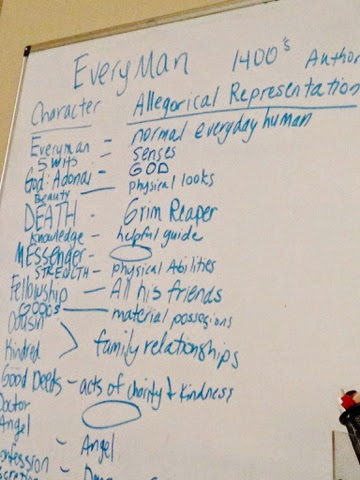 EveryMan 1400's Author
Character Allegorical Representation
Everyman - normal everyday human
5 Wits - senses
God: Adonai - GOD
Beauty - physical looks
DEATH - Grim Reaper
Knowledge - helpful guide
MESSenger -
STRENGTH - physical Abilities
Fellowship - All his friends
GOODS - material possesions
Cousin
Kindred > family relationships
Good Deeds - acts of charity & Kindness
Doctor
Angel
onfession - Angel